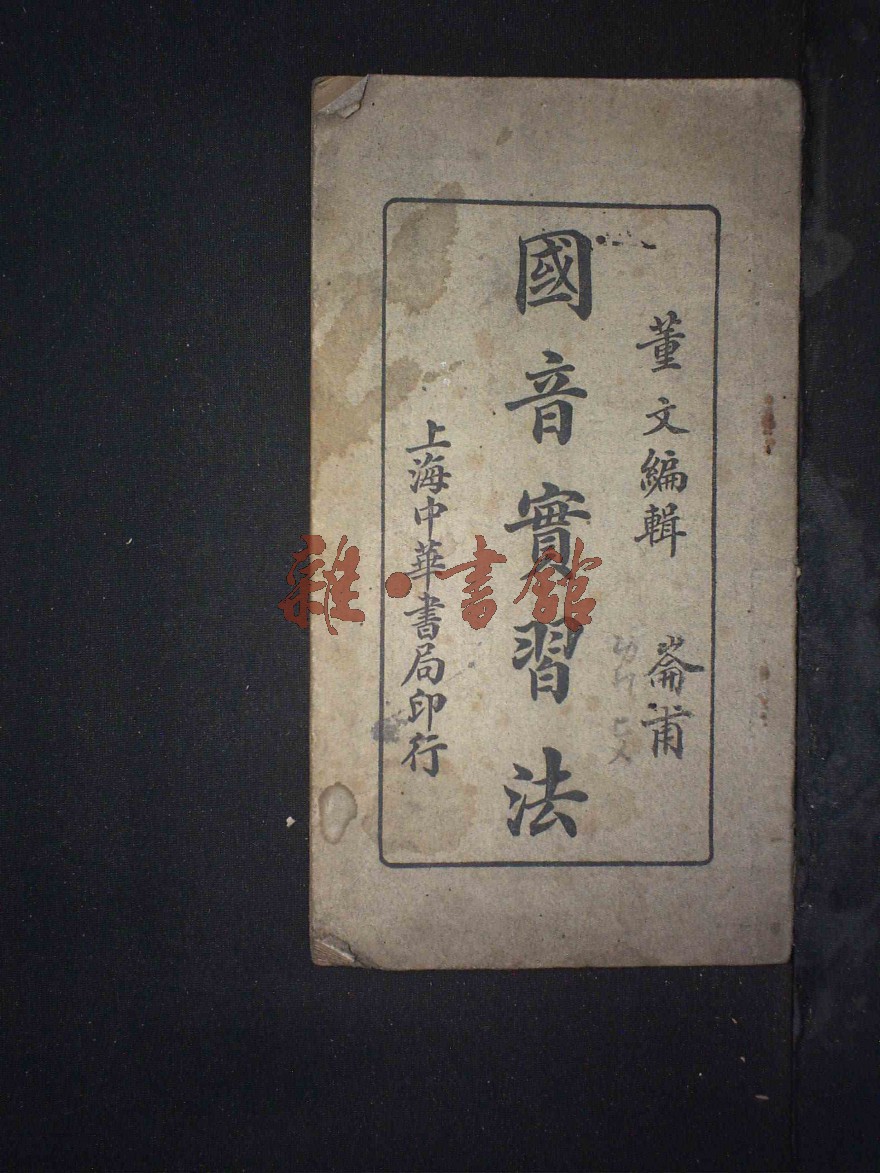 董文編輯 崙甫
國音實習法
上海中華書局印行
雜·書館